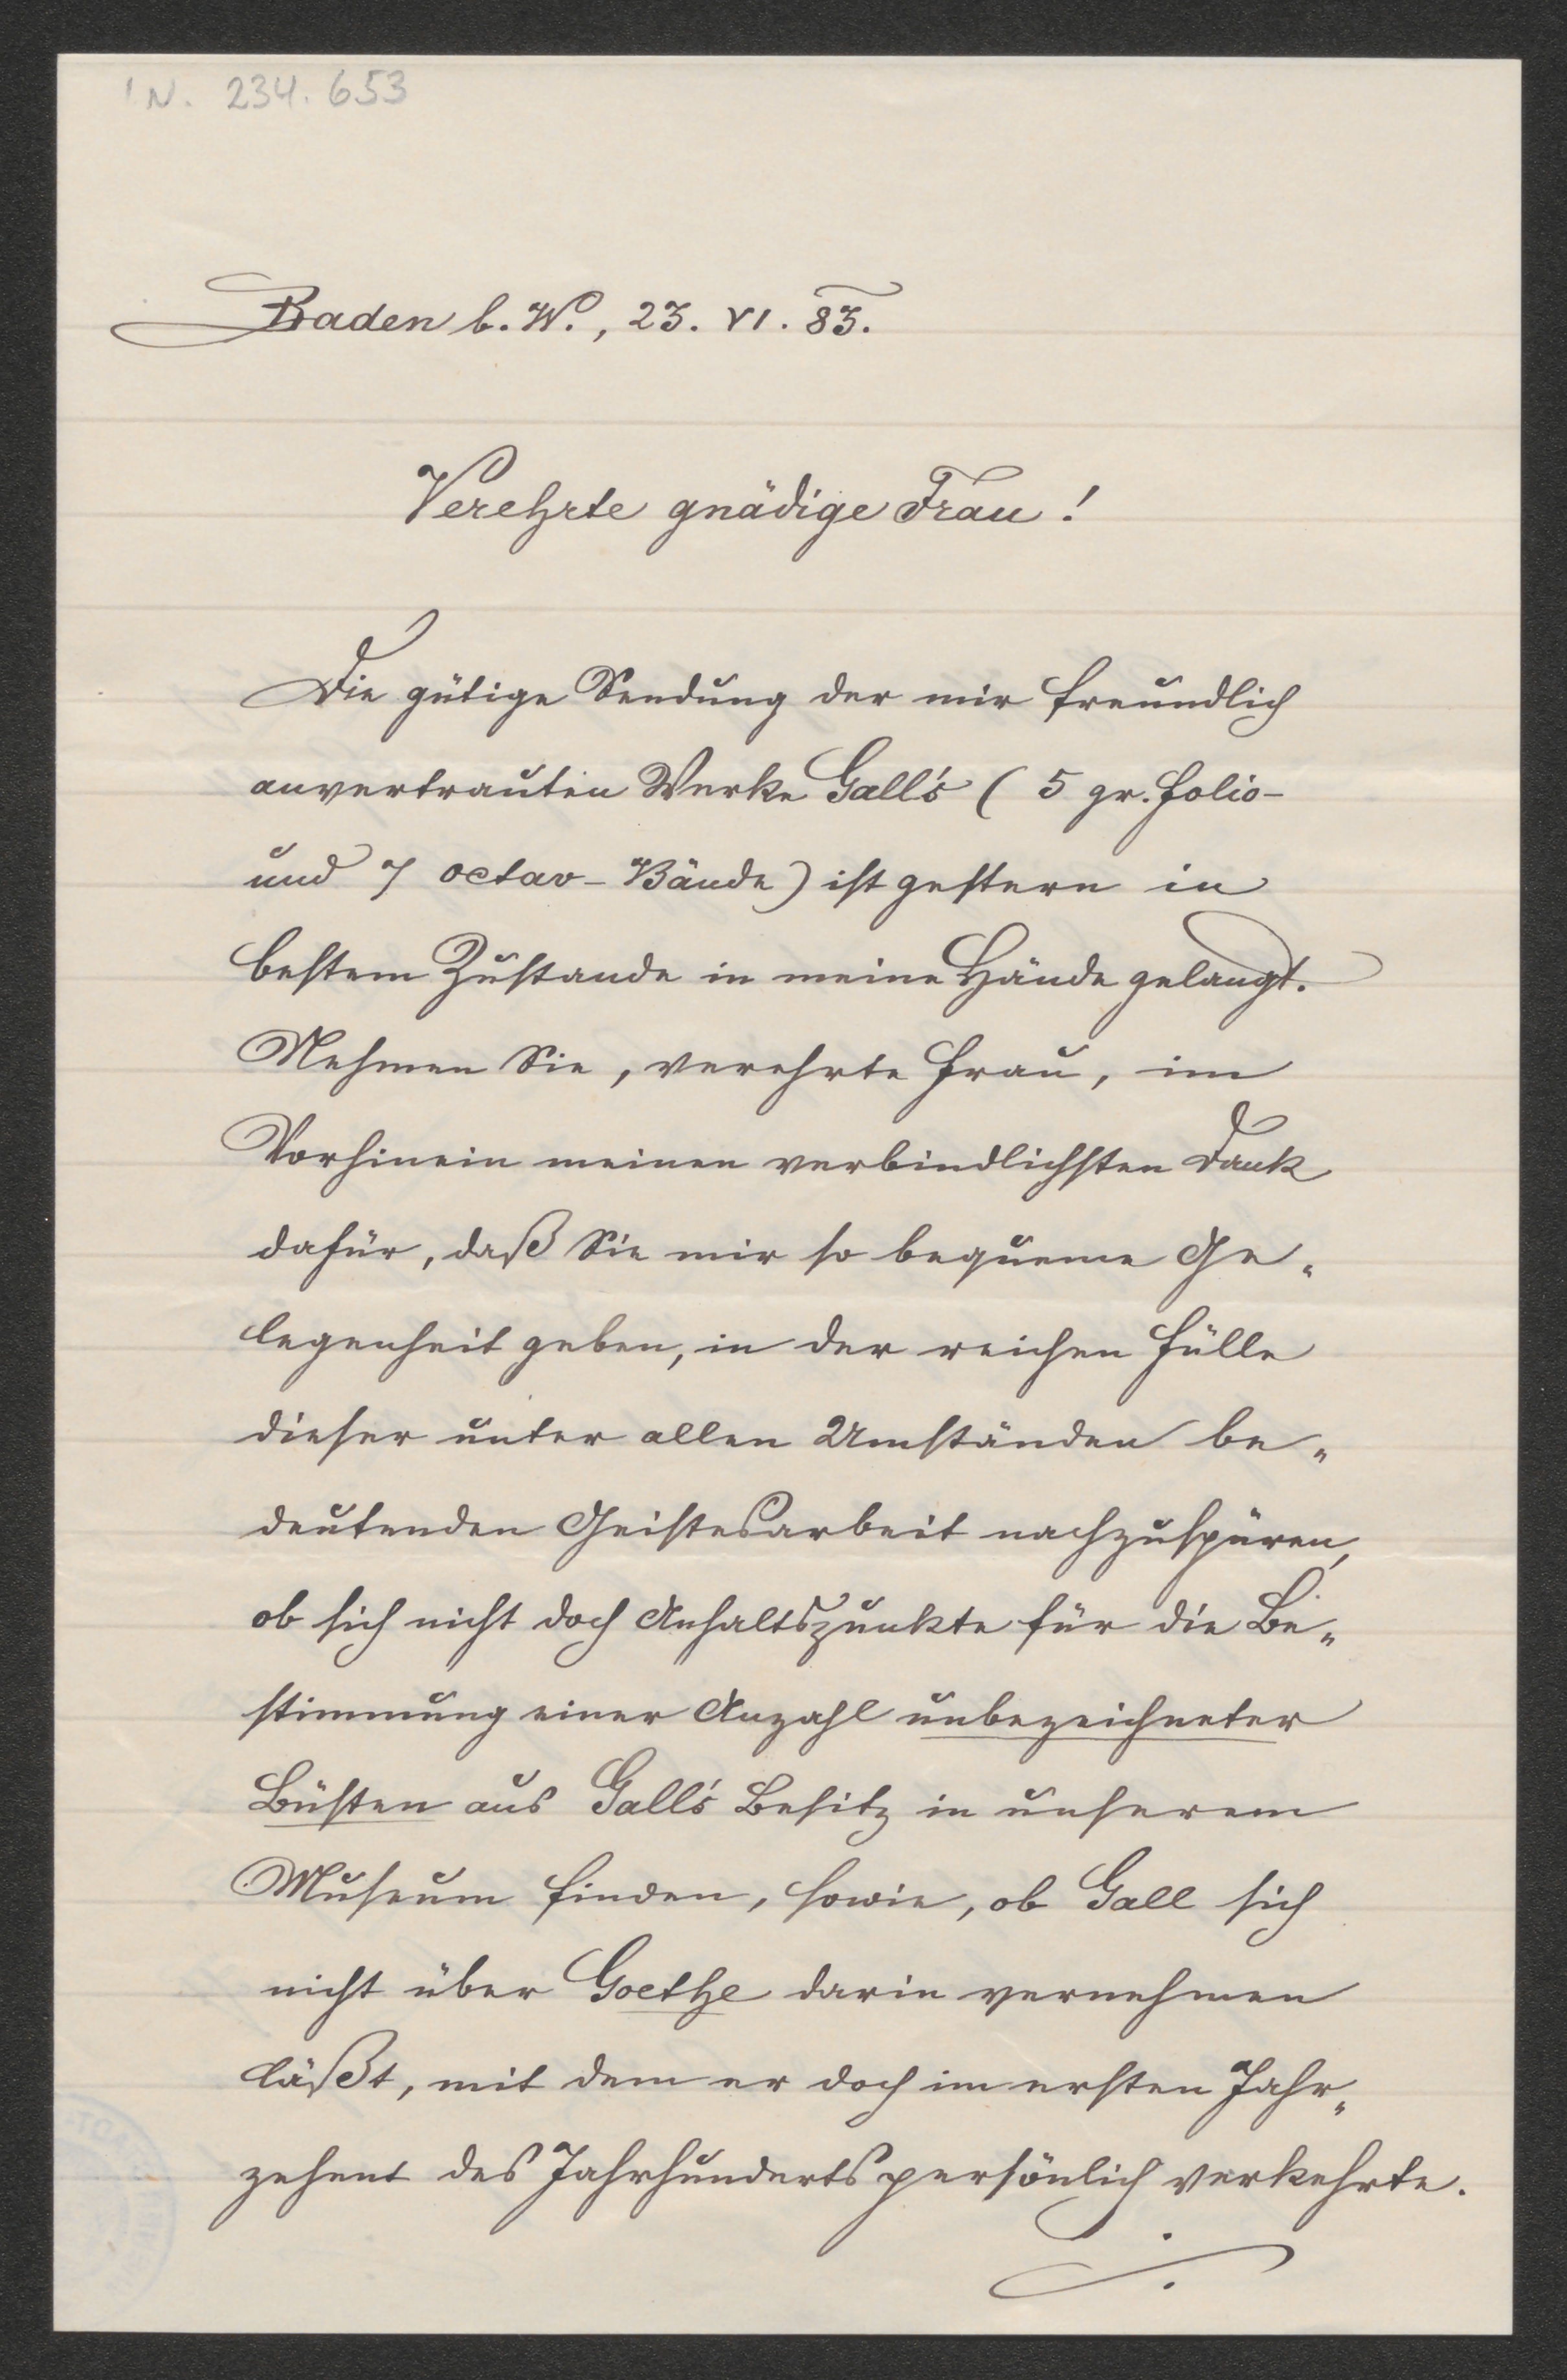 IN. 234.653
Baden b. W., 23. VI. 83.
Verehrte gnädige Frau!
Die gütige Sendung der mir freundlich
anvertrauten Werke Gall's (5 gr. folio-
und 7 octav-Bände) ist gestern in
bestem Zustande in meine Hände gelangt.
Nehmen Sie, verehrte Frau, im
Vorhinein meinen verbindlichsten Dank
dafür, daß Sie mir so bequeme Ge„
legenheit geben, in der reichen Fülle
dieser unter allen Umständen be„
deutenden Geistesarbeit nachzuspüren,
ob sich nicht doch Anhaltspunkte für die Be„
stimmung einer Anzahl unbezeichneter
Büsten aus Gall's Besitz in unserem
Museum finden, sowie, ob Gall sich
nicht über Goethe darin vernehmen
läßt, mit dem er doch im ersten Jahr„
zehent des Jahrhunderts persönlich verkehrte.
./.